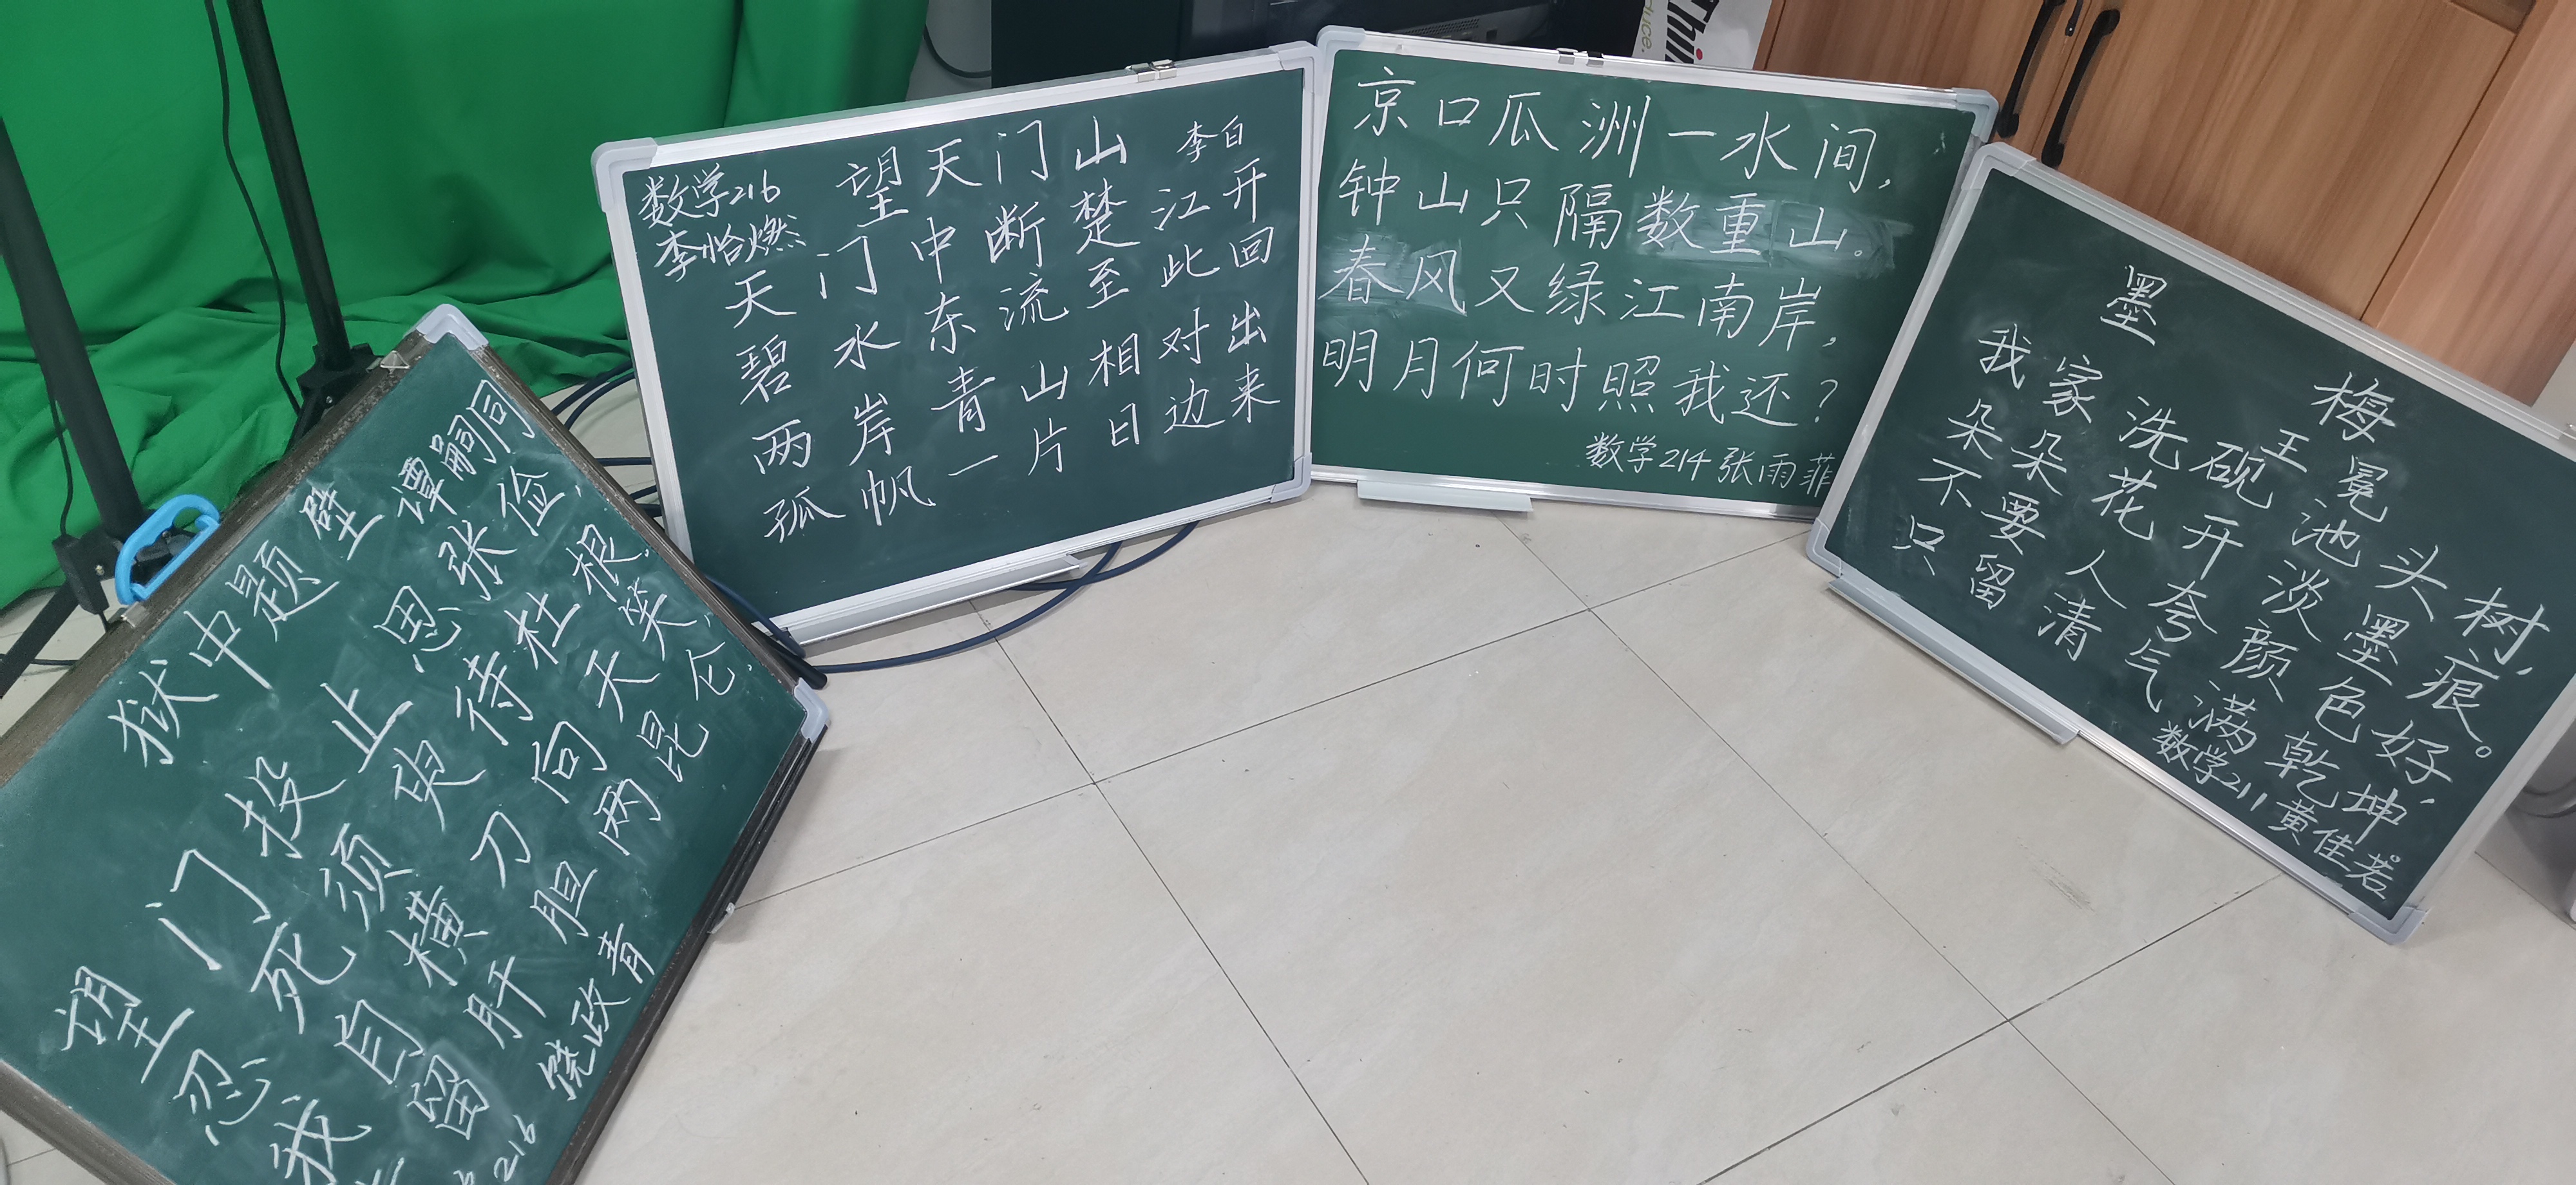 狱中题壁 谭嗣同
望门投止思张俭,
忍死须臾待杜根.
我自横刀向天笑,
留肝胆两昆仑.
216 饶政青
数学216
李怡燃
望天门山 李白
天门中断楚江开
碧水东流至此回
两岸青山相对出
孤帆一片日边来
京口瓜洲一水间,
钟山只隔数重山。
春风又绿江南岸,
明月何时照我还?
数学214 张雨菲
墨梅
王冕
我家洗砚池头树,
朵朵花开淡墨痕。
不要人夸颜色好,
只留清气满乾坤。
数学211 黄佳若
Thi
duce.